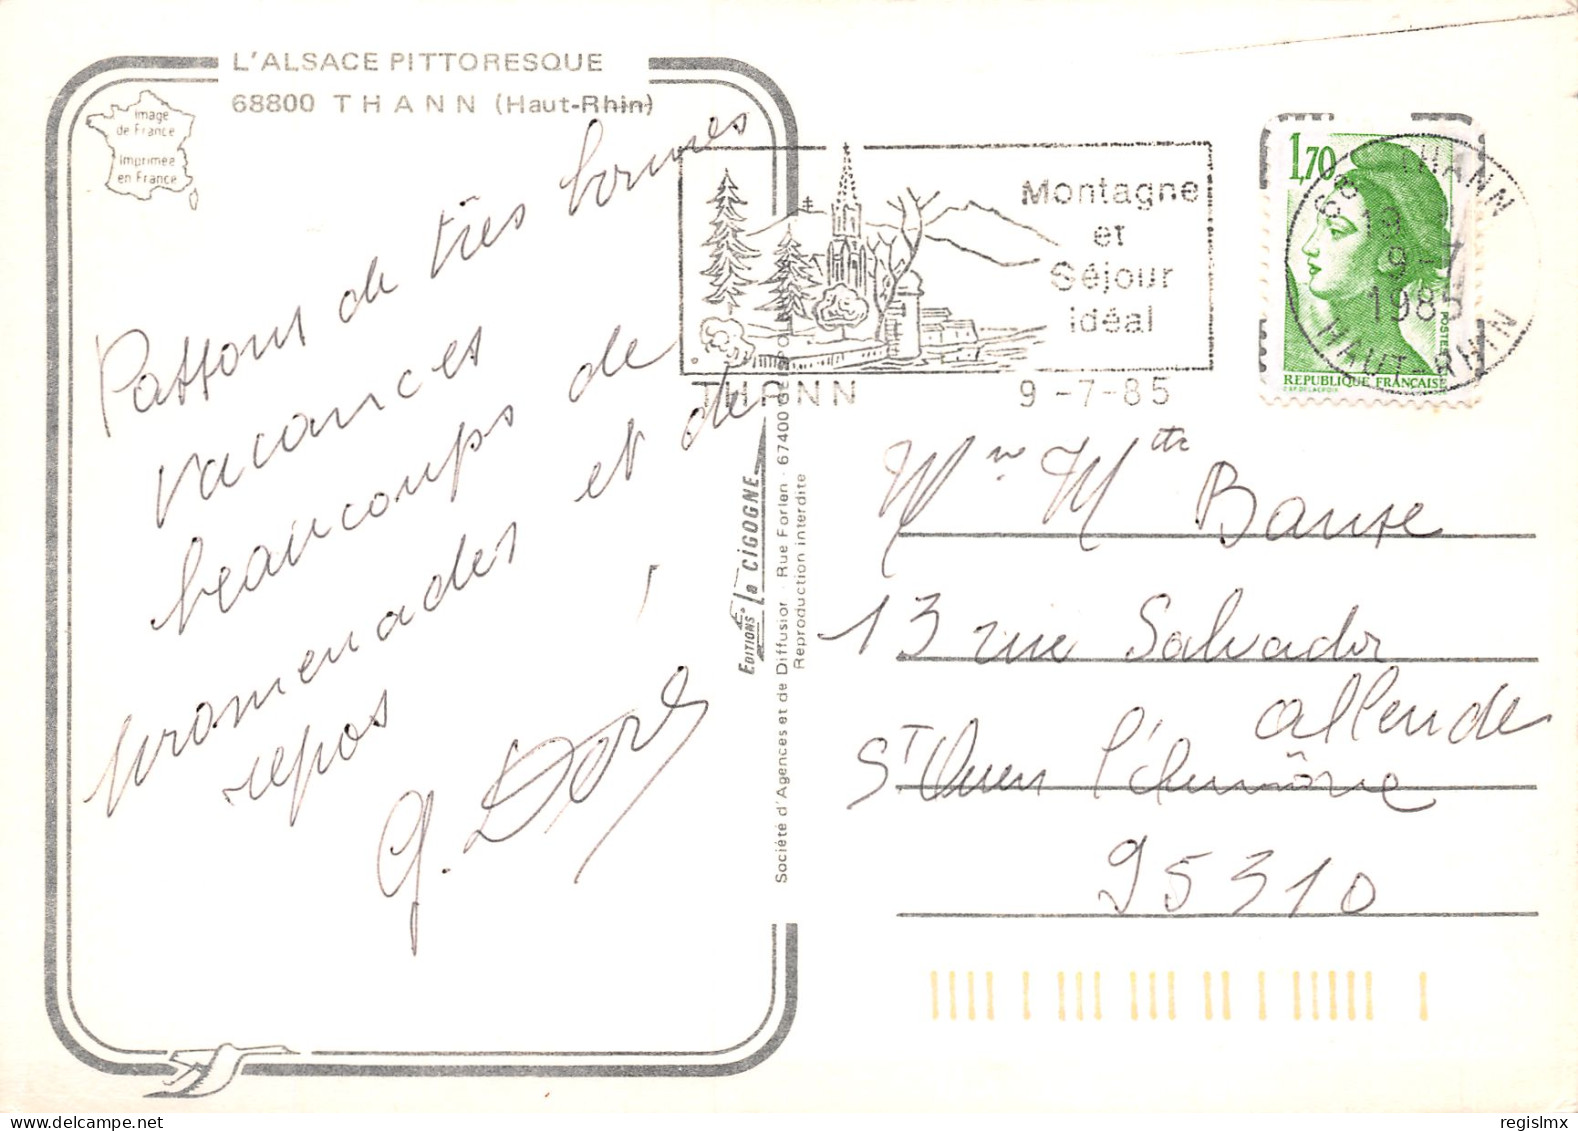 L'ALSACE PITTORESQUE
68800 THANN (Haut-Rhin)
Image
de France
Imprimée
en France
Passons de très bonnes
vacances
beaucoups de
promenades et de
repos
G. Doré
EDITIONS la CIGOGNE
Société d'Agences et de Diffusion - Rue Forlen - 67400
Reproduction interdite
Montagne
et
Séjour
idéal
THANN 9-7-85
1,70
POSTES
REPUBLIQUE FRANÇAISE
68 THANN
9-7
1985
HAUT-RHIN
Mme Mlle
13 rue Salvador
allende
St Ouen l'Aumône
95310
regislmx